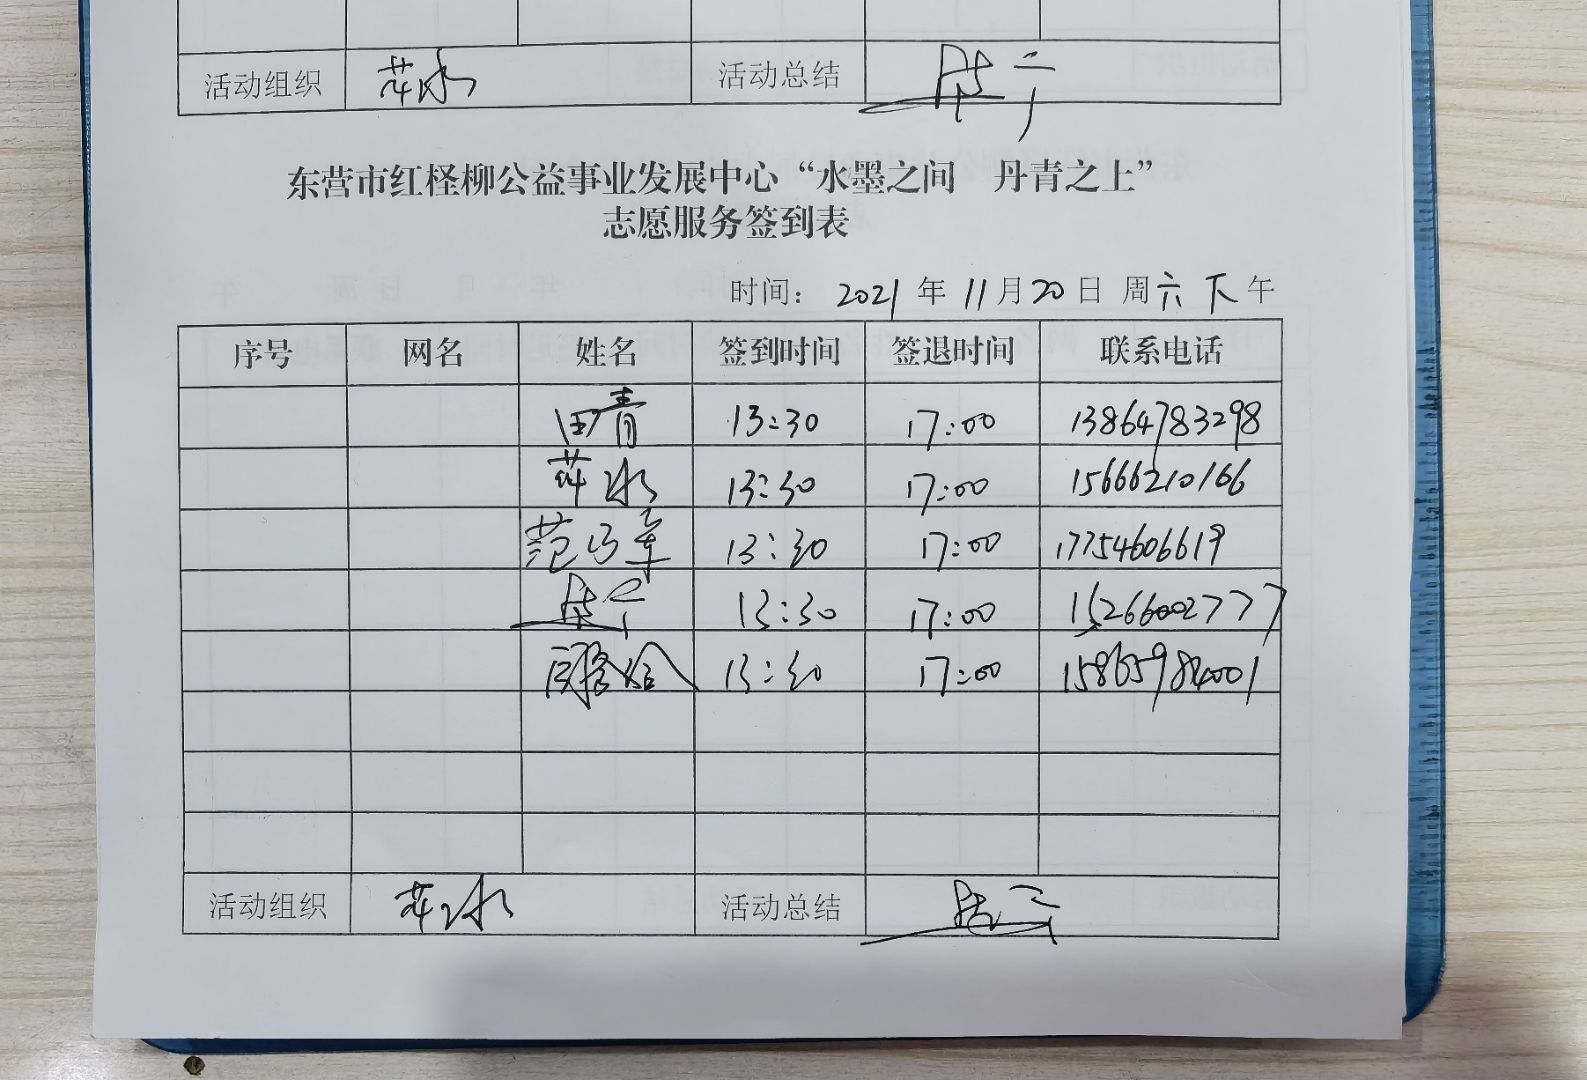 活动组织 萍水 活动总结
东营市红柽柳公益事业发展中心“水墨之间 丹青之上”
志愿服务签到表
时间： 2021 年 11 月 20 日 周六 下 午
序号 网名 姓名 签到时间 签退时间 联系电话
田青 13:30 17:00 13864783298
萍水 13:30 17:00 15666210166
13:30 17:00 17754606619
13:30 17:00 15266002777
13:30 17:00
活动组织 萍水 活动总结